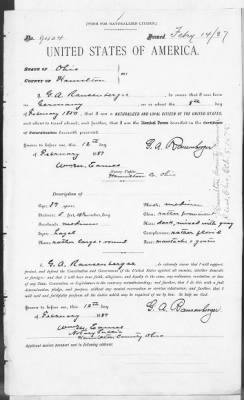 [FORM FOR NATURALIZED CITIZEN.]
No. 9404 Issued Feby 14/87
UNITED STATES OF AMERICA.
STATE OF Ohio
COUNTY OF Hamilton
I, G. A. Ramsenberger, do swear that I was born
in Germany on or about the 8th day
of February 1850; that I am a NATURALIZED AND LOYAL CITIZEN OF THE UNITED STATES,
and about to travel abroad; and further, that I am the Identical Person described in the Certificate
of Naturalization herewith presented.
Sworn to before me, this 12th day
of February 1887
Wm. Eames
Notary Public
Hamilton Co. Ohio
G. A. Ramsenberger
Description of
Age: 37 years
Stature: 5 feet
Forehead: medium
Eyes: hazel
Nose: rather large & round
Mouth: medium
Chin: rather prominent
Hair: dark, mixed with gray
Complexion: rather florid
Face:
I, G. A. Ramsenberger, do solemnly swear that I will support,
protect, and defend the Constitution and Government of the United States against all enemies, whether domestic
or foreign; and that I will bear true faith, allegiance, and loyalty to the same, any ordinance, resolution or law
of any State, Convention or Legislature to the contrary notwithstanding; and further, that I do this with a full
determination, pledge, and purpose, without any mental reservation or evasion whatsoever; and further, that I
will well and faithfully perform all the duties which may be required of me by law. So help me God.
Sworn to before me, this 12th day
of February 1887
G. A. Ramsenberger
Wm. Eames
Notary Public
Hamilton County Ohio
Applicant desires passport sent to following address: